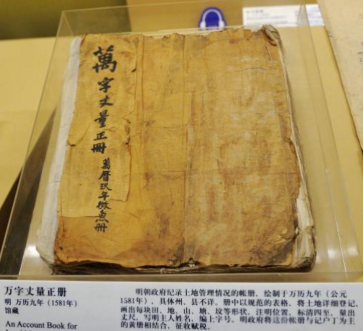 萬字丈量正册
萬曆玖年魚鱗册
万字丈量正册
明 万历九年（1581年）
馆藏
An Account Book for
明朝政府纪录土地管理情况的帐册，绘制于万历九年（公元
1581年），具体州、县不详。册中以规范的表格，将土地详细登记，
画出每块田、地、山、塘、坟等形状，注明位置，标清四至，量出
丈尺，写明主人姓名，编上字号。明政府将这份帐册与记户丁为主
的黄册相结合，征收赋税。